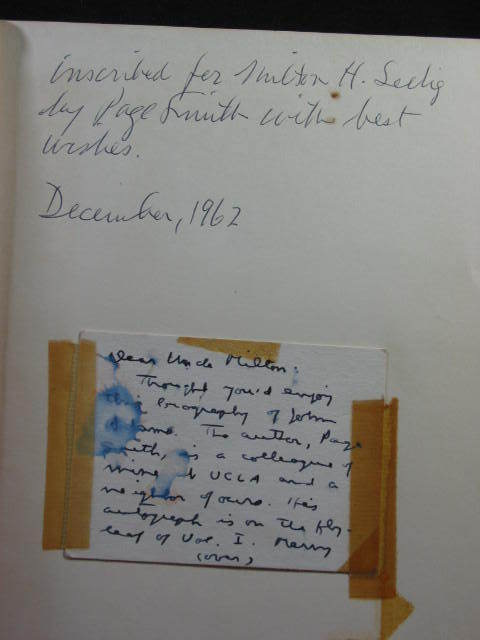 inscribed for Milton H. Seelig
by Page Smith with best
wishes.
December, 1962
Dear Uncle Milton:
Thought you'd enjoy
this biography of John
Adams. The author, Page
Smith, is a colleague of
mine at UCLA and a
neighbor of ours. His
autograph is on the fly-
leaf of Vol. I. Merry
(over)